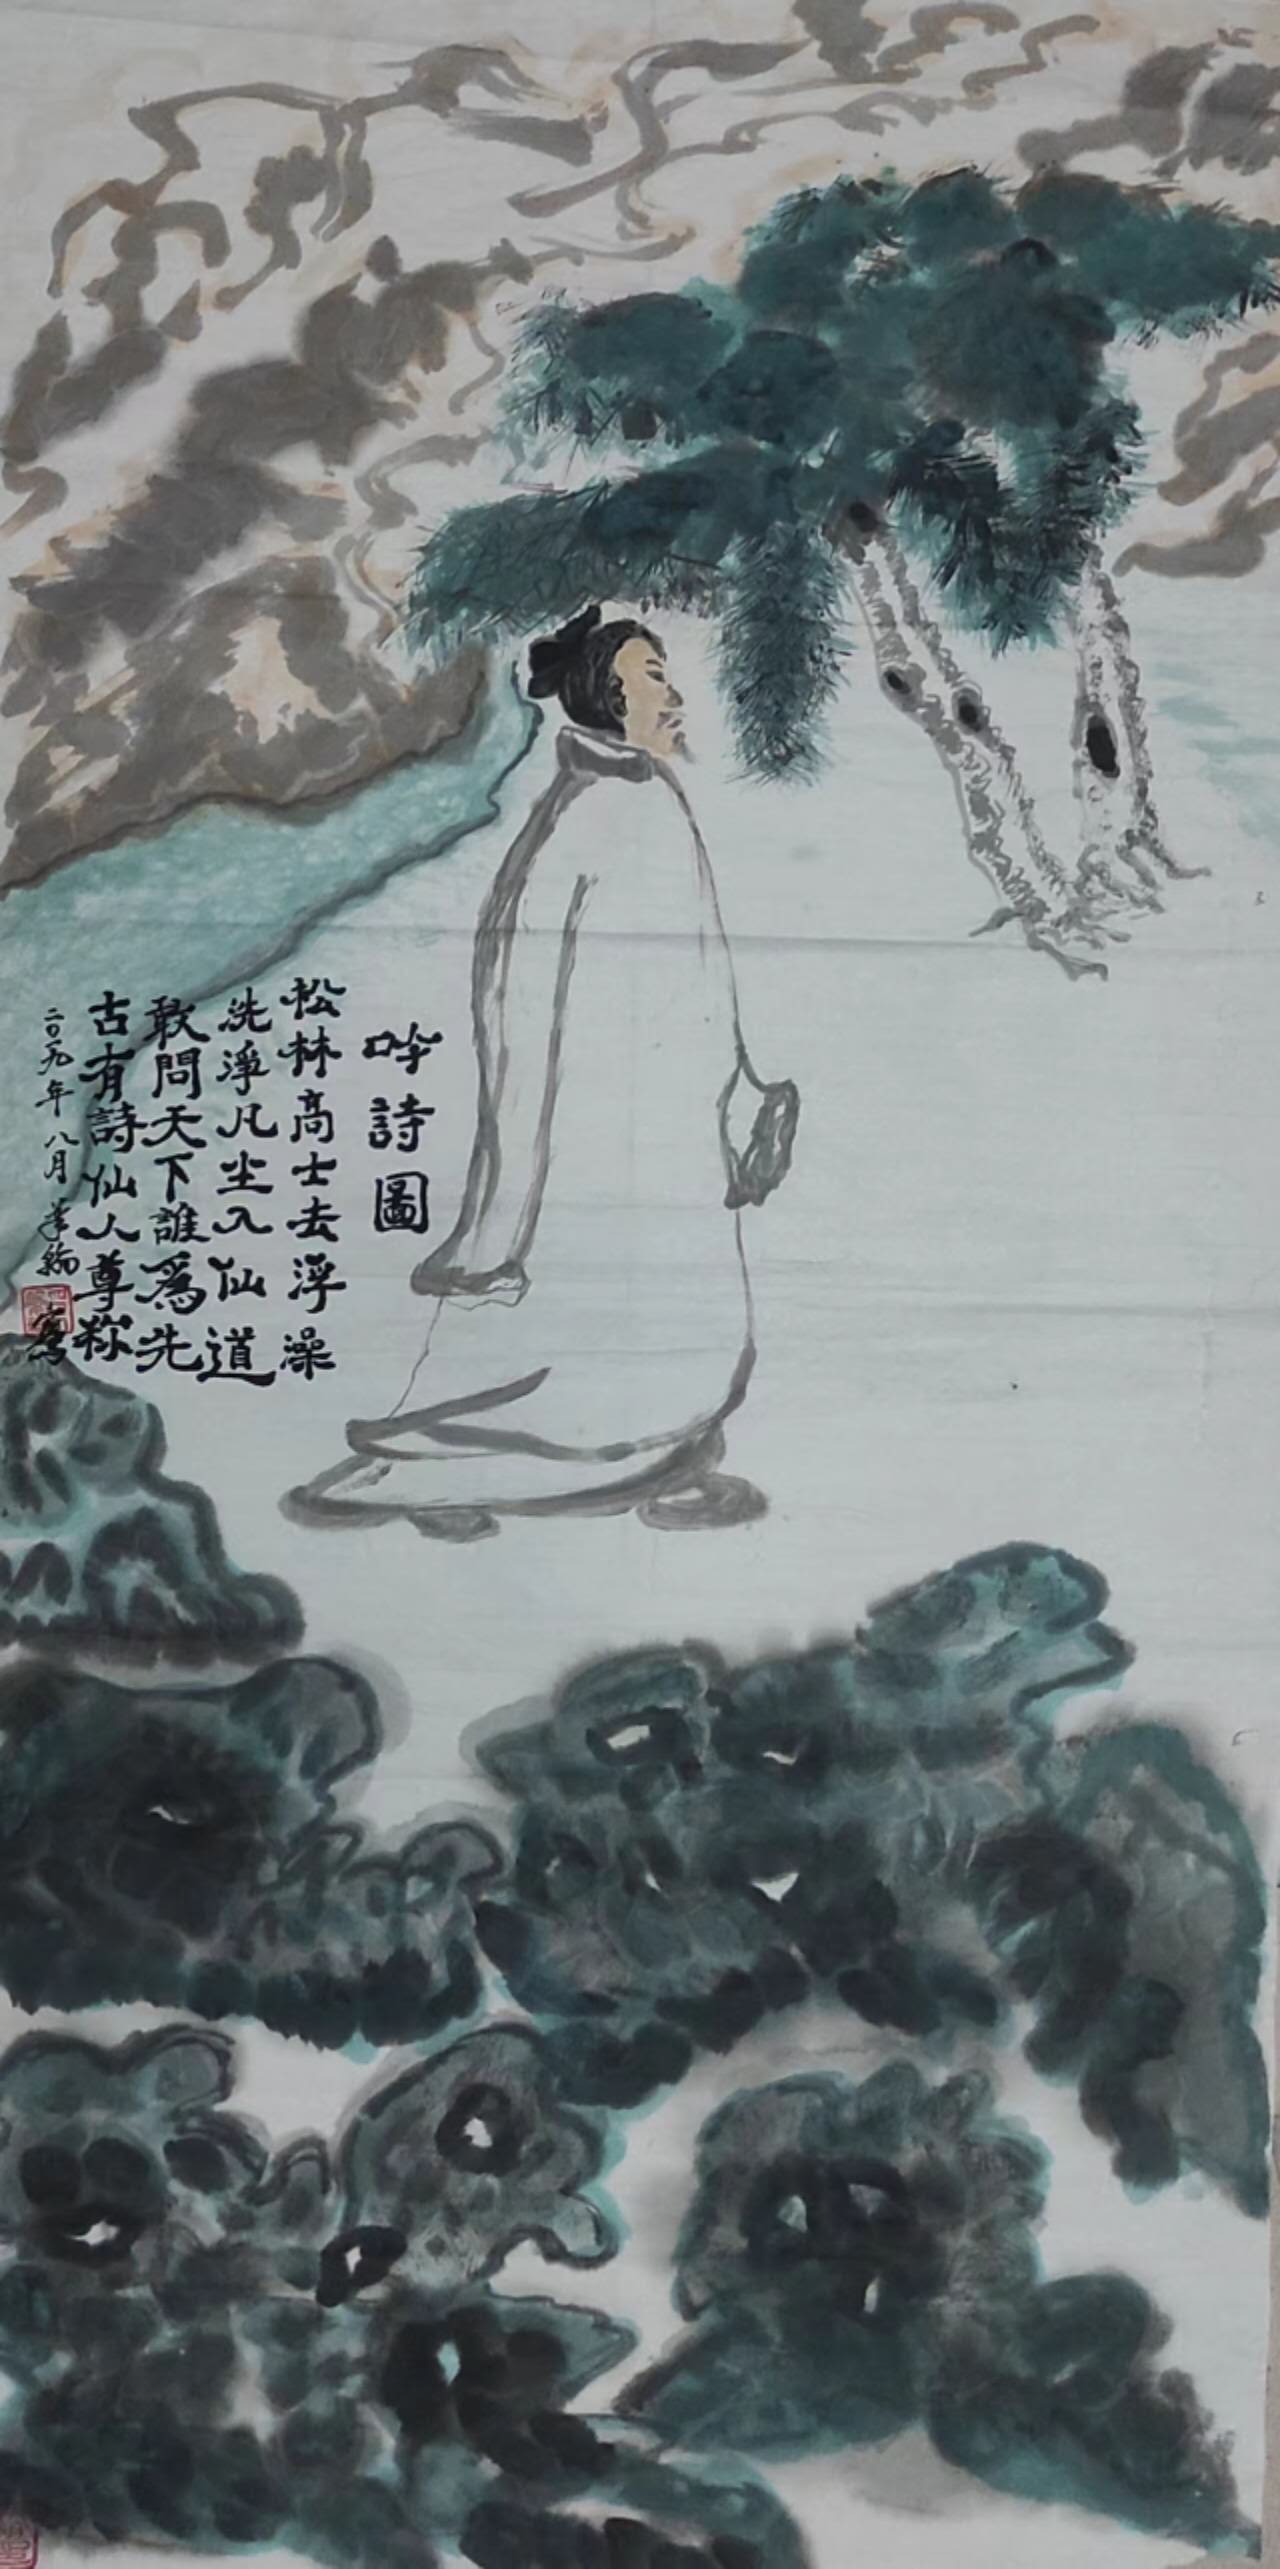 吟詩圖
松林高士去浮澡
洗淨凡尘入仙道
敢問天下誰爲先
古有詩仙人尊称
二〇一九年八月 寫